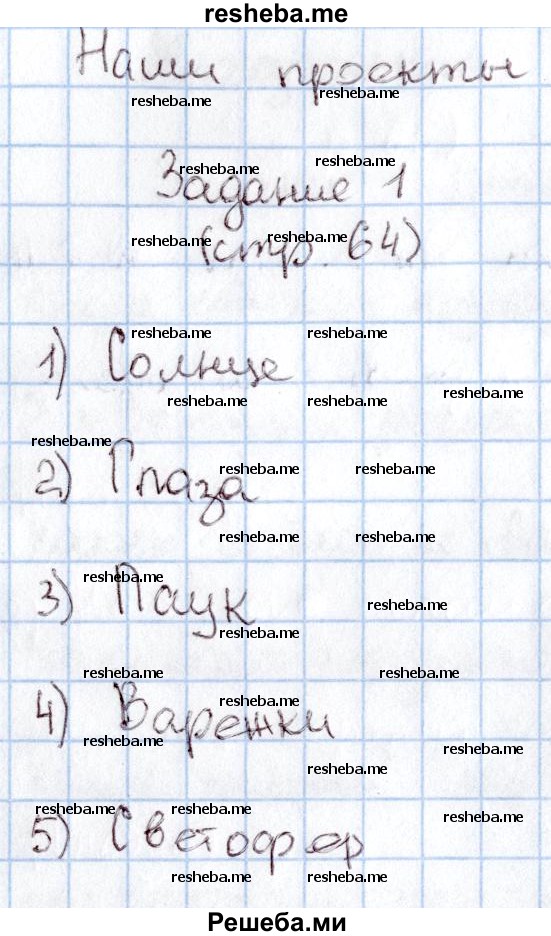 resheba.me
Наши проекты
resheba.me resheba.me
resheba.me resheba.me
Задание 1
resheba.me resheba.me
(стр. 64)
resheba.me resheba.me
1) Солнце
resheba.me resheba.me resheba.me
resheba.me resheba.me resheba.me
2) Глаза
resheba.me resheba.me
resheba.me resheba.me
3) Паук
resheba.me
resheba.me resheba.me
resheba.me
4) Варежки
resheba.me resheba.me
resheba.me resheba.me
resheba.me resheba.me resheba.me
5) Светофор
resheba.me resheba.me
Решеба.ми